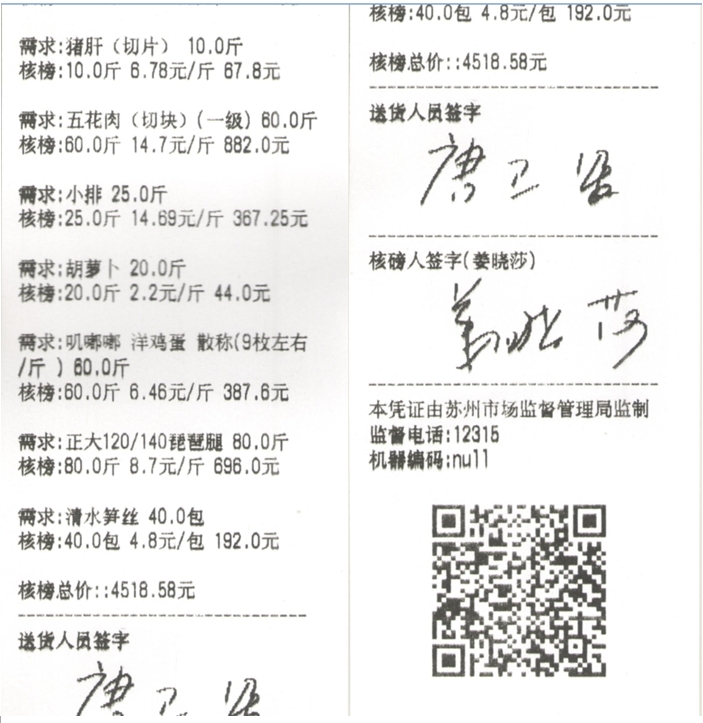 需求:猪肝（切片） 10.0斤
核榜:10.0斤 6.78元/斤 67.8元
需求:五花肉（切块）(一级) 60.0斤
核榜:60.0斤 14.7元/斤 882.0元
需求:小排 25.0斤
核榜:25.0斤 14.69元/斤 367.25元
需求:胡萝卜 20.0斤
核榜:20.0斤 2.2元/斤 44.0元
需求:叽嘟嘟 洋鸡蛋 散称(9枚左右
/斤 ) 60.0斤
核榜:60.0斤 6.46元/斤 387.6元
需求:正大120/140琵琶腿 80.0斤
核榜:80.0斤 8.7元/斤 696.0元
需求:清水笋丝 40.0包
核榜:40.0包 4.8元/包 192.0元
核榜总价::4518.58元
送货人员签字
核榜:40.0包 4.8元/包 192.0元
核榜总价::4518.58元
送货人员签字
核磅人签字(姜晓莎)
姜晓莎
本凭证由苏州市场监督管理局监制
监督电话:12315
机器编码:null